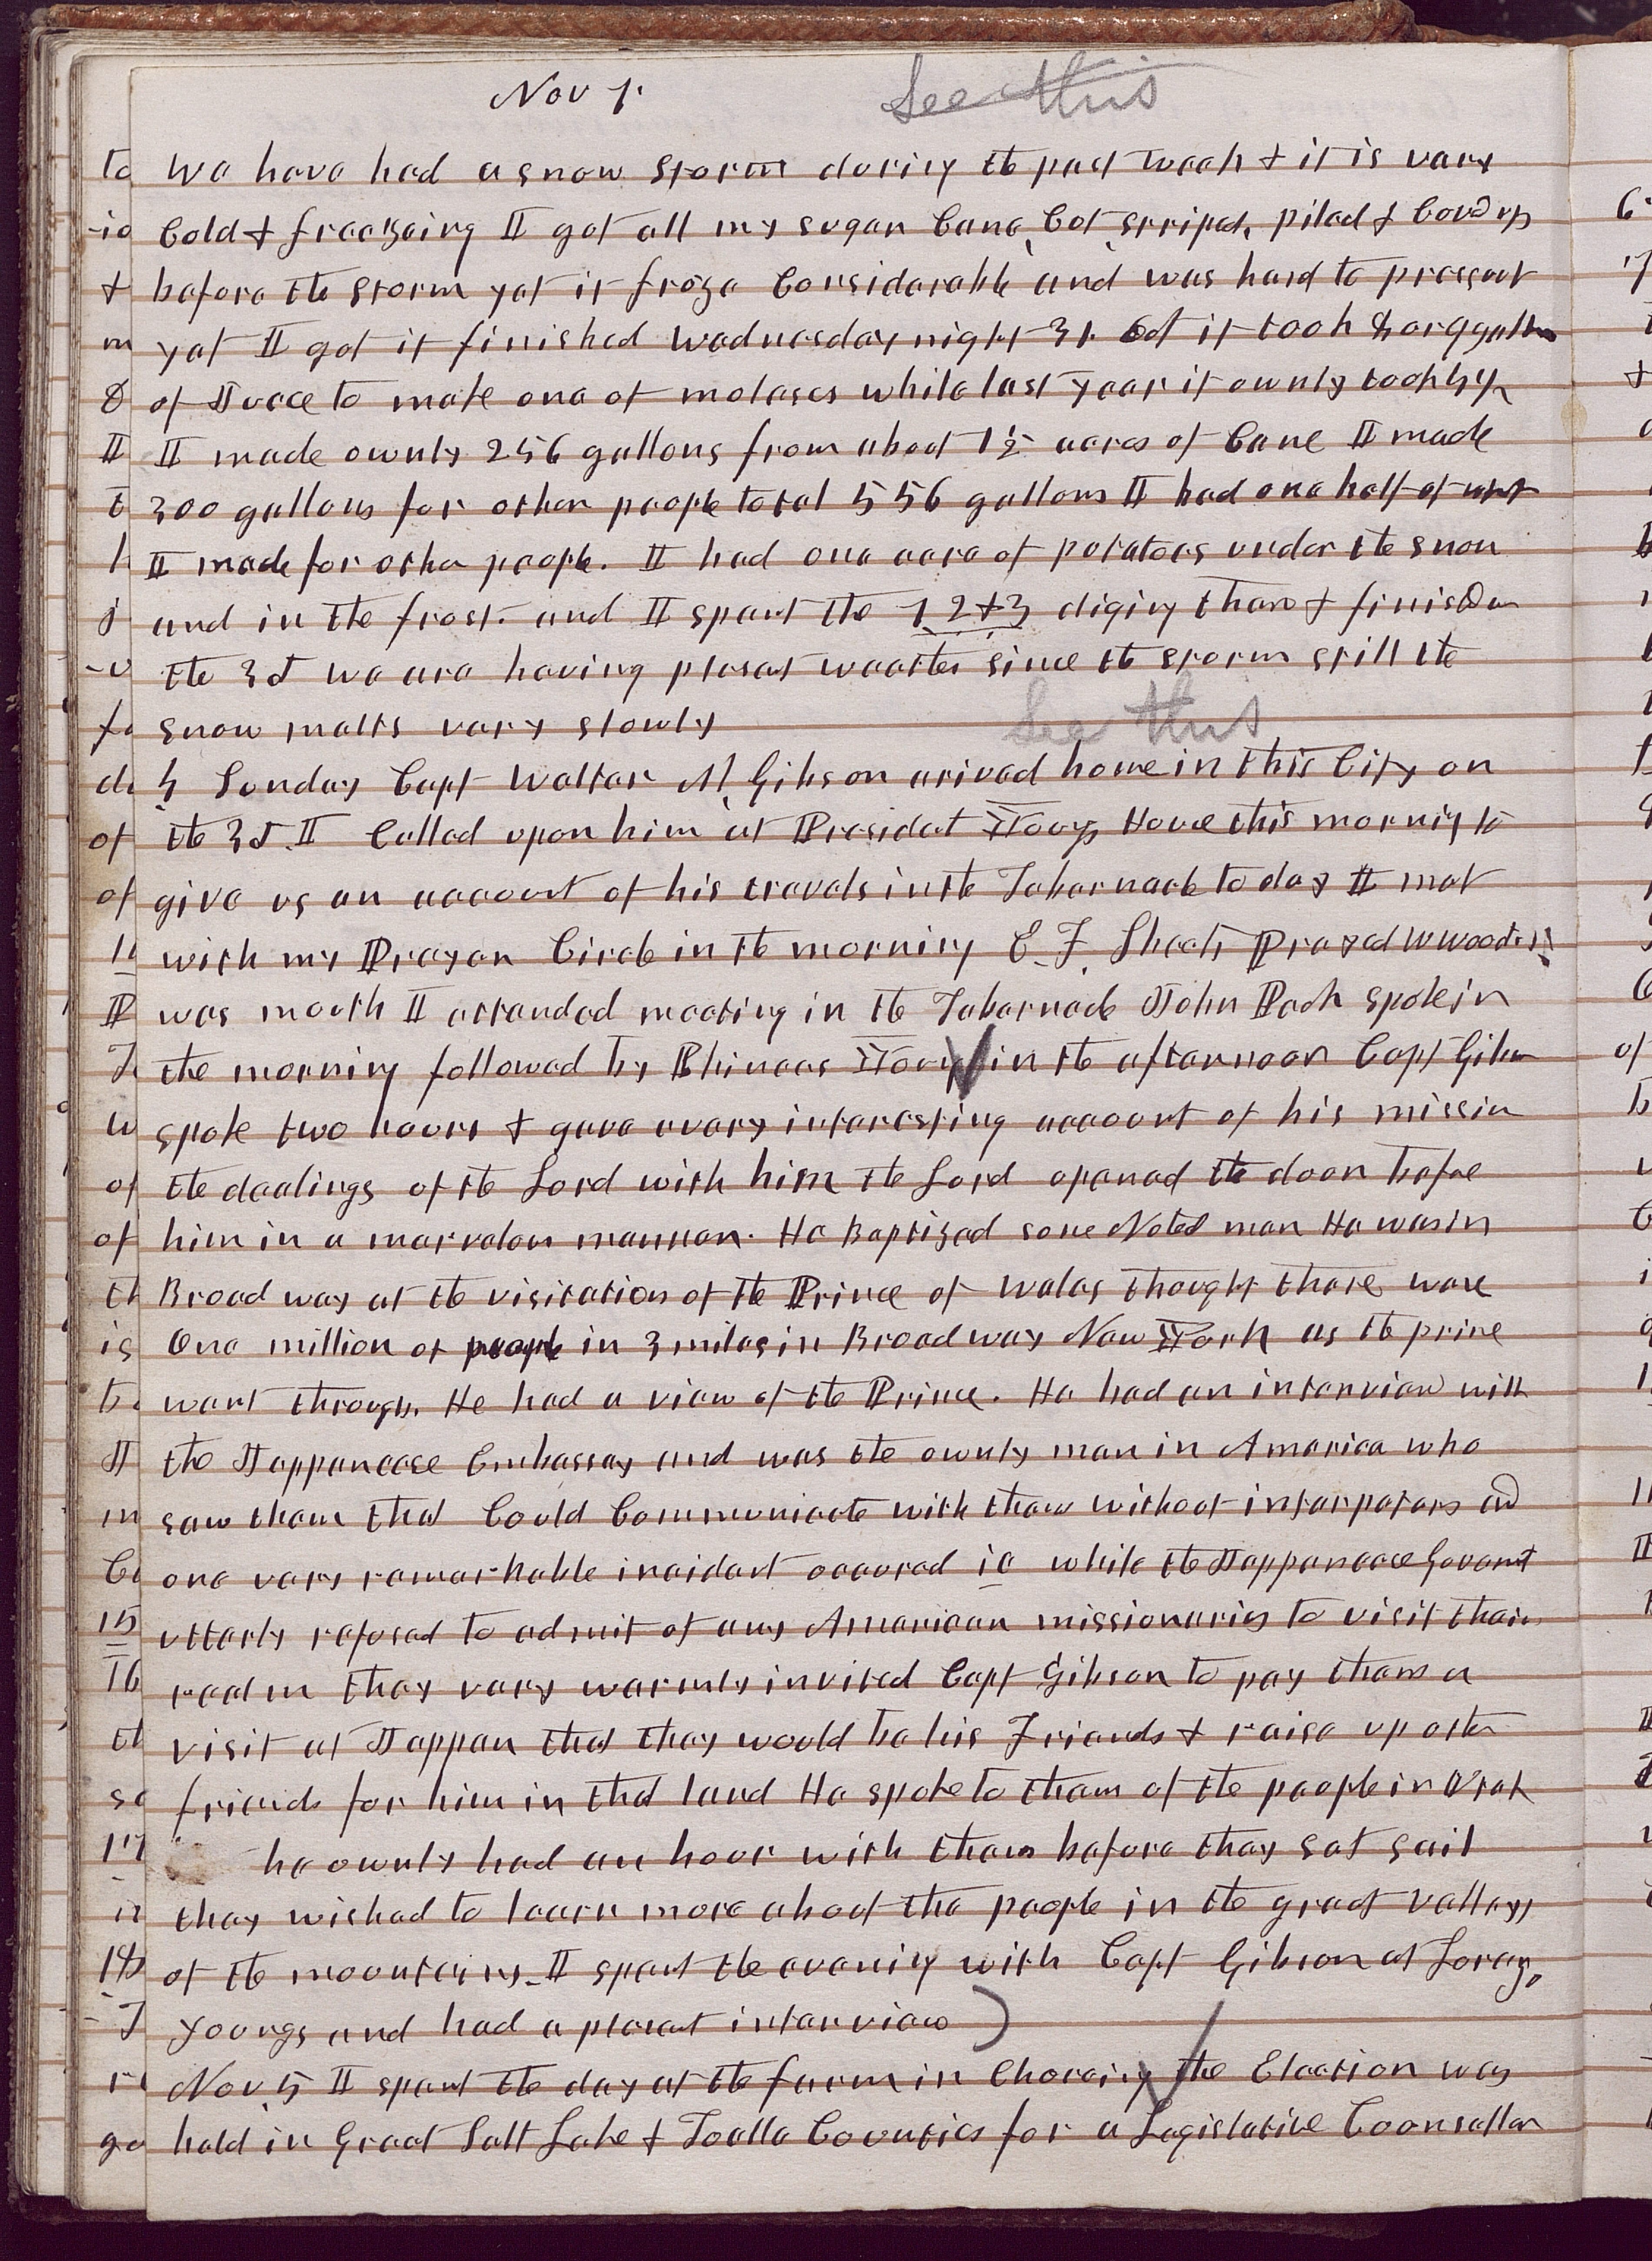 Nov 1. See this
We have had a snow storm during the past week & it is very
Cold & freezeing I got all my sugar Cane, Cot, striped, piled & Coverd up
before the storm yet it froze Considerable and was hard to press out
yet I got it finished Wednesday night 31. Oct it took 8 or 9 gallons
of Juice to make one of molases while last year it ownly took 4½
I made ownly 256 gallons from about 1½ acres of Cane I made
300 gallons for other people total 556 gallons I had one half of what
I made for other people. I had one acre of potatoes under the snow
and in the frost. and I spent the 1 2 & 3 diging them & finished on
the 3d We are having plesent weather since the storm still the
snow melts very slowly See this
4 Sunday Capt Walter M, Gibson arived home in this City on
the 3d. I Called upon him at President Youngs House this morning to
give us an account of his travels in the Tabernacle to day I met
with my Prayer Circle in the morning E. F. Sheets Prayed W Woodruff
was mouth I attended meeting in the Tabernacle John Pack spoke in
the morning followed by Phineas Young in the afternoon Capt Gibson
spoke two hours & gave a very interesting account of his mission
the dealings of the Lord with him the Lord opened the door before
him in a marvelous manner. He Baptized some Noted men He was in
Broad way at the visitation of the Prince of Wales thought there were
One million of people in 3 miles in Broad way New York as the prince
went through. He had a view of the Prince. He had an interview with
the Jappaneese Embassay and was the ownly man in America who
saw them that Could Communicate with them without interpeters and
one very remarkable incident occured ie while the Jappaneese Goverment
utterly refused to admit of any American missionaries to visit their
realm they very warmly invited Capt Gibson to pay them a
visit at Jappan that they would be his Friends & raise up other
friends for him in that land He spoke to them of the people in Utah
he ownly had an hour with them before they set sail
they wished to learn more about the people in the great valleys
of the mountains. I spent the evening with Capt Gibson at Loren,
Youngs and had a plesent interview
Nov 5 I spent the day at the farm in Choreing the Election was
held in Great Salt Lake & Toella Counties for a Legislative Counseller